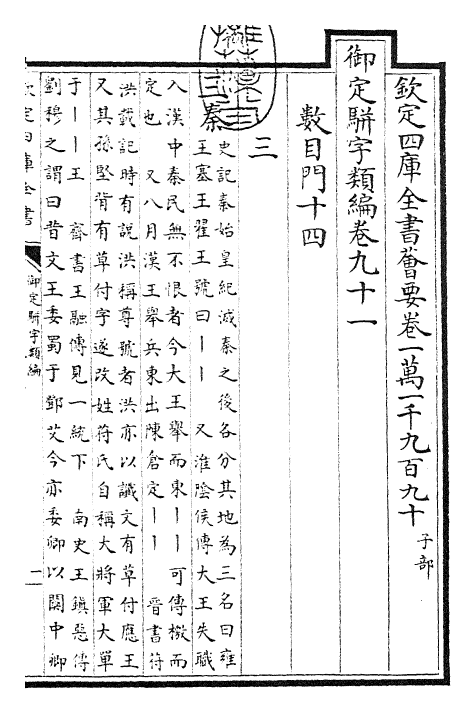 欽定四庫全書薈要卷一萬一千九百九十 子部
御定駢字類編卷九十一
數目門十四
三
秦 史記秦始皇紀滅秦之後各分其地為三名曰雍
王塞王翟王號曰丨丨 又淮陰侯傳大王失職
入漢中秦民無不恨者今大王舉而東丨丨可傳檄而
定也 又八月漢王舉兵東出陳倉定丨丨 晉書苻
洪載記時有說洪稱尊號者洪亦以讖文有草付應王
又其孫堅背有草付字遂改姓苻氏自稱大將軍大單
于丨丨王 齊書王融傳見一統下 南史王鎮惡傳
劉穆之謂曰昔文王委蜀于鄧艾今亦委卿以關中卿
欽定四庫全書
御定駢字類編
一